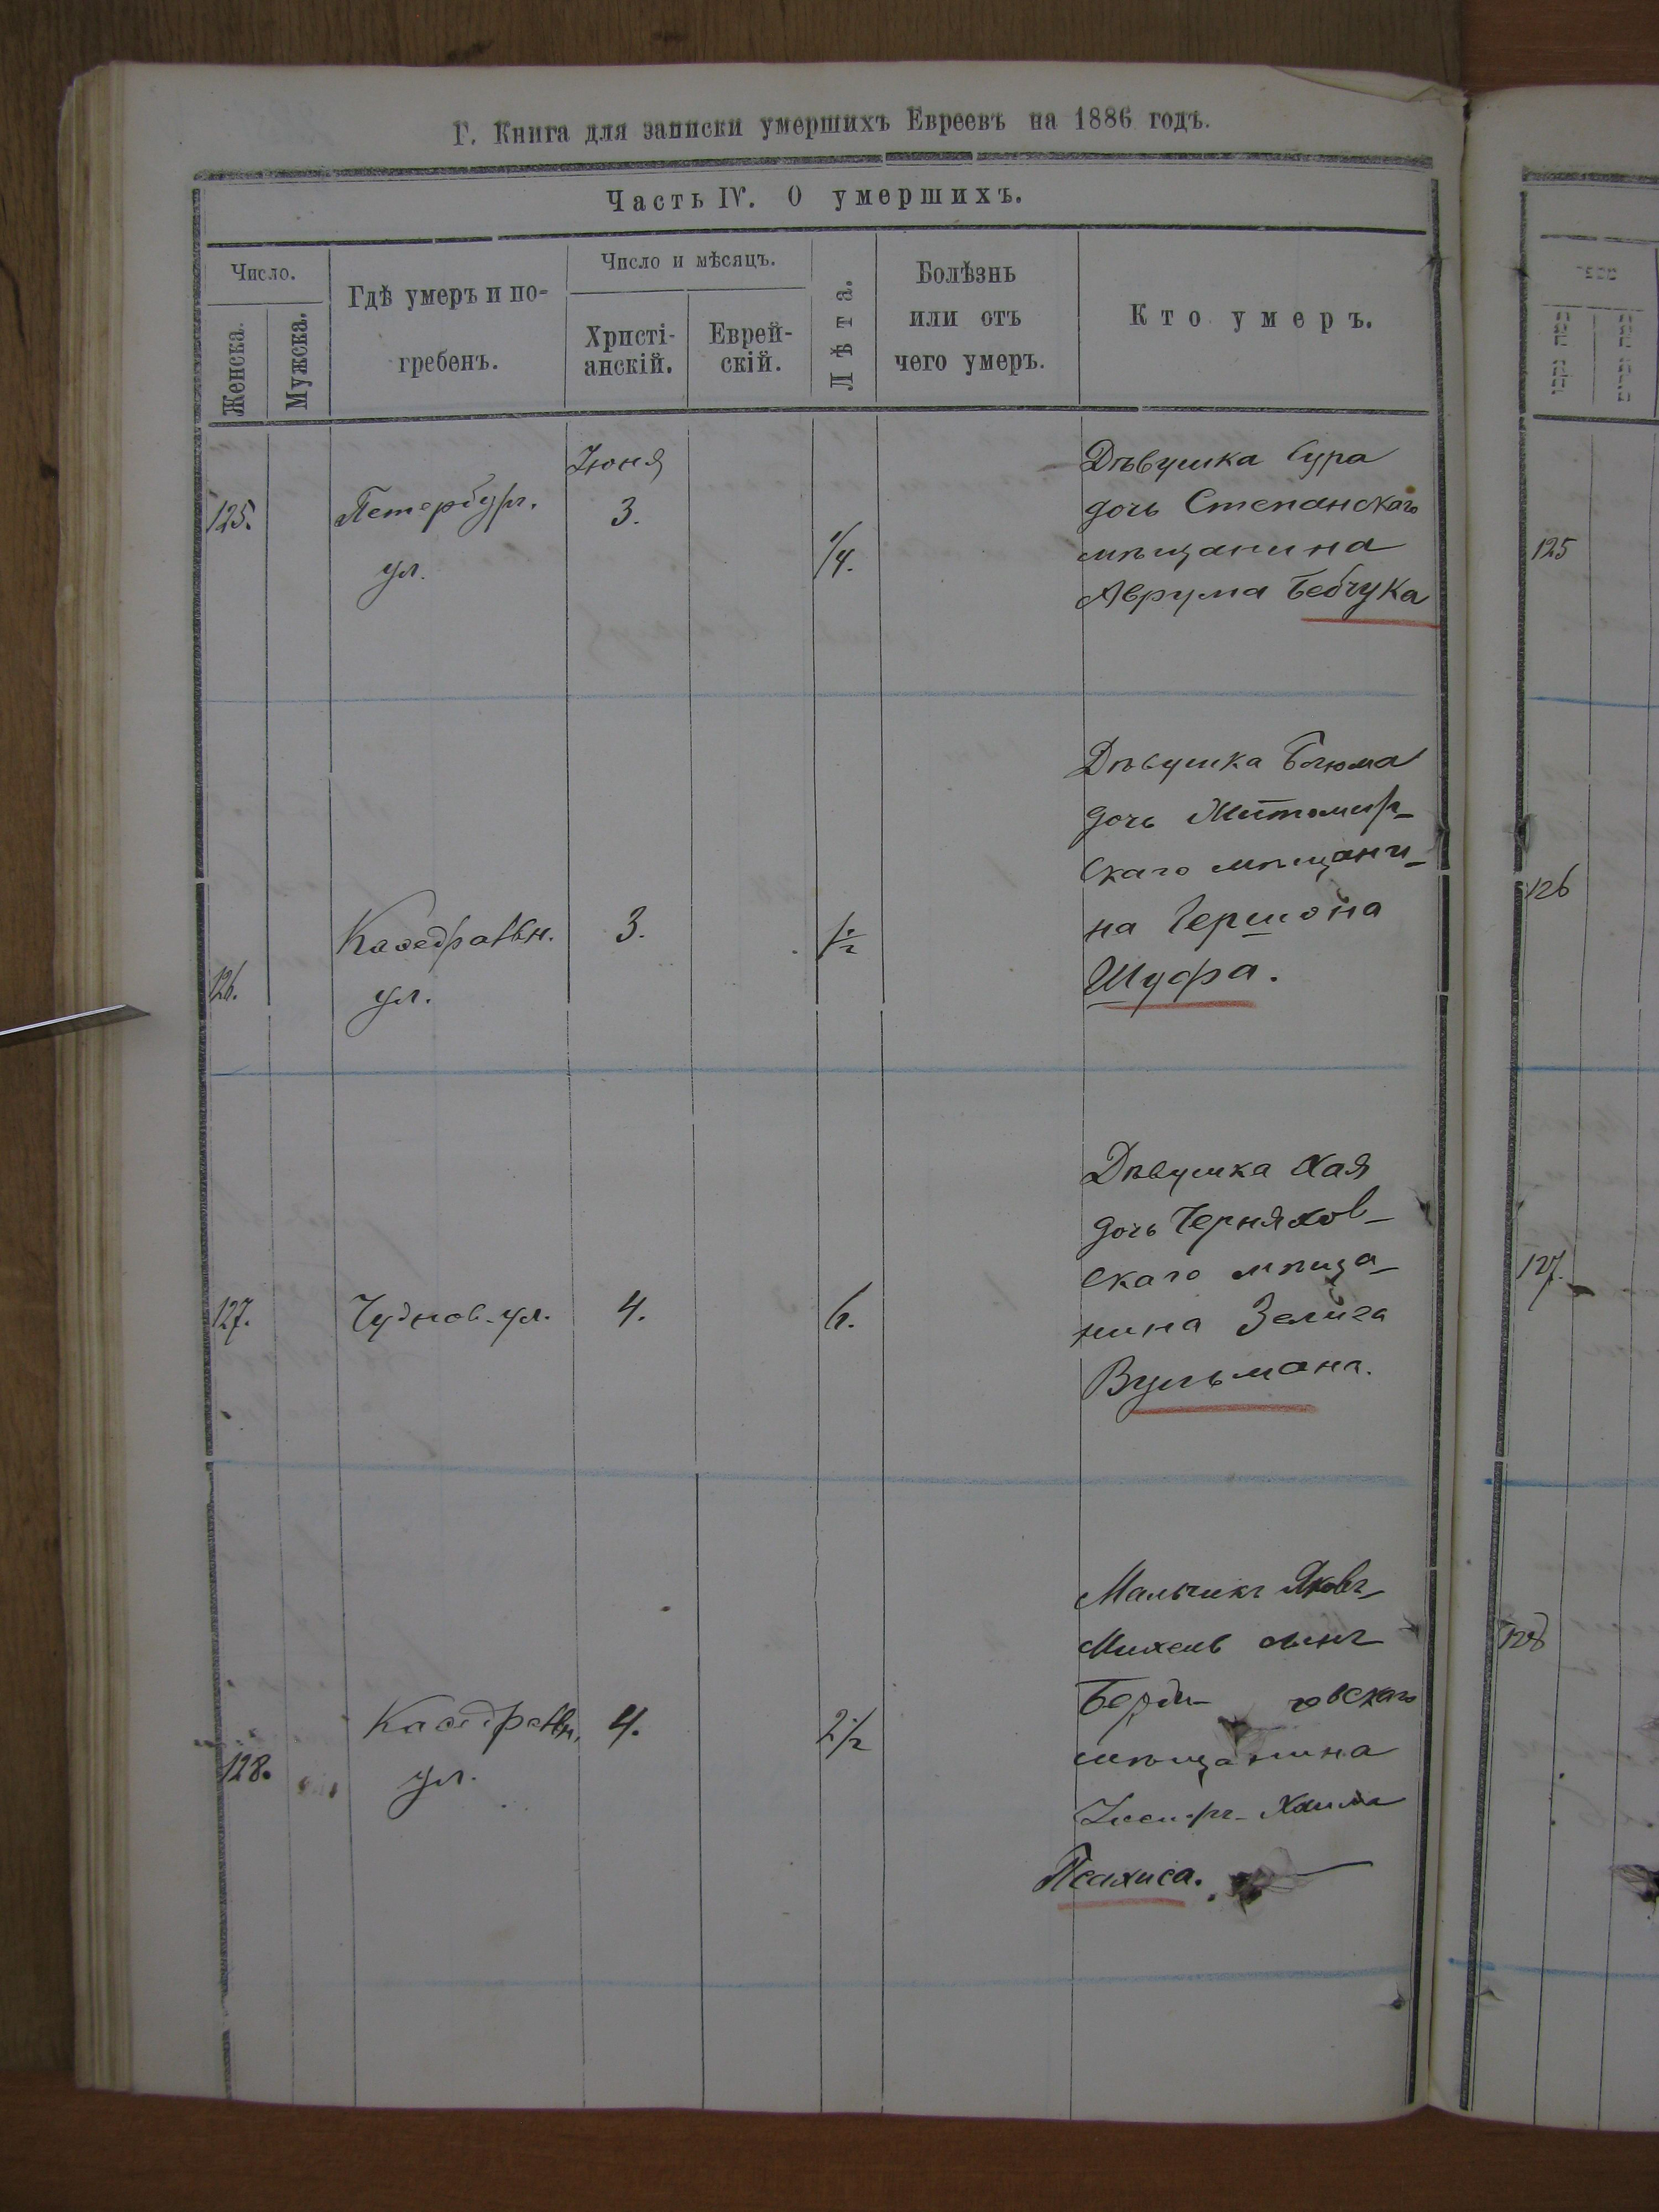 Г. Книга для записки умершихъ Евреевъ на 1886 годъ.
Часть IV. О умершихъ.
Число.
Женска.
Мужска.
Гдѣ умеръ и по-
гребенъ.
Число и мѣсяцъ.
Христі-
анскій.
Еврей-
скій.
Лѣта.
Болѣзнь
или отъ
чего умеръ.
Кто умеръ.
125.
Петербург.
ул.
Іюня
3.
1/4.
Дѣвушка Сура
дочь Степанскаго
мѣщанина
Аврума Бебчука
125
126.
Каѳедральн.
ул.
3.
1/2
Дѣвушка Блюма
дочь Житомир-
скаго мѣщани-
на Гершона
Шуфа.
126
127.
Чуднов. ул.
4.
6.
Дѣвушка Хая
дочь Черняхов-
скаго мѣща-
нина Зелига
Вульмана.
127.
128.
Каѳедральн.
ул.
4.
2 1/2
Мальчикъ Яковъ-
Михель сынъ
Берди- човскаго
мѣщанина
Хаима
Псахиса.
128